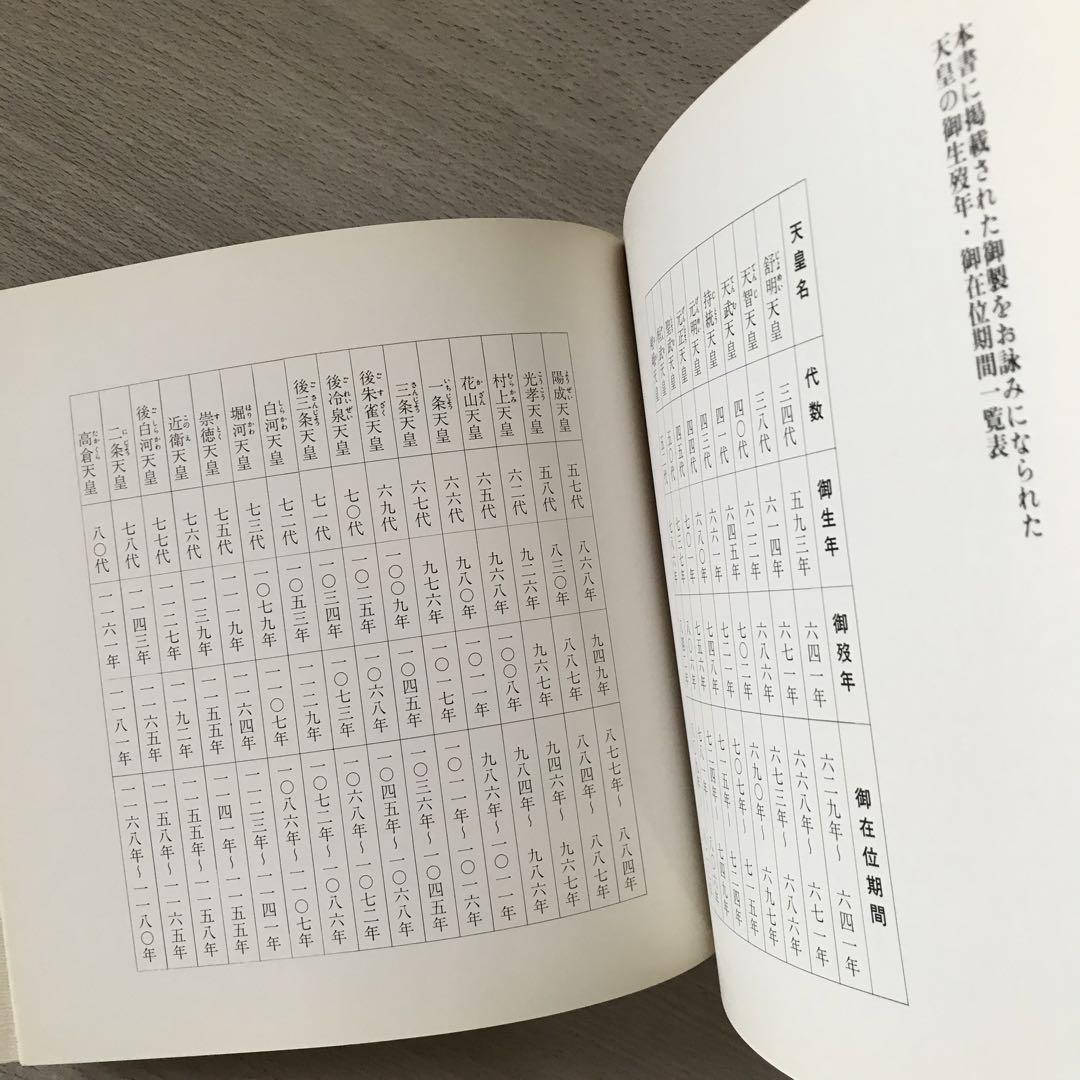 本書に掲載された御製をお詠みになられた
天皇の御生歿年・御在位期間一覧表
天皇名 代数 御生年 御歿年 御在位期間
舒明天皇 三四代 五九三年 六四一年 六二九年〜六四一年
天智天皇 三八代 六一四年 六七一年 六六八年〜六七一年
天武天皇 四〇代 六二二年 六八六年 六七三年〜六八六年
持統天皇 四一代 六四五年 七〇二年 六九〇年〜六九七年
元明天皇 四三代 六六一年 七二一年 七〇七年〜七一五年
元正天皇 四四代 六八〇年 七四八年 七一五年〜七二四年
聖武天皇 四五代 七〇一年 七五六年
陽成天皇 五七代 八六八年 九四九年 八七七年〜八八四年
光孝天皇 五八代 八三〇年 八八七年 八八四年〜八八七年
村上天皇 六二代 九二六年 九六七年 九四六年〜九六七年
花山天皇 六五代 九六八年 一〇〇八年 九八四年〜九八六年
一条天皇 六六代 九八〇年 一〇一一年 九八六年〜一〇一一年
三条天皇 六七代 九七六年 一〇一七年 一〇一一年〜一〇一六年
後朱雀天皇 六九代 一〇〇九年 一〇四五年 一〇三六年〜一〇四五年
後冷泉天皇 七〇代 一〇二五年 一〇六八年 一〇四五年〜一〇六八年
後三条天皇 七一代 一〇三四年 一〇七三年 一〇六八年〜一〇七二年
白河天皇 七二代 一〇五三年 一一二九年 一〇七二年〜一〇八六年
堀河天皇 七三代 一〇七九年 一一〇七年 一〇八六年〜一一〇七年
崇徳天皇 七五代 一一一九年 一一六四年 一一二三年〜一一四一年
近衛天皇 七六代 一一三九年 一一五五年 一一四一年〜一一五五年
後白河天皇 七七代 一一二七年 一一九二年 一一五五年〜一一五八年
二条天皇 七八代 一一四三年 一一六五年 一一五八年〜一一六五年
高倉天皇 八〇代 一一六一年 一一八一年 一一六八年〜一一八〇年